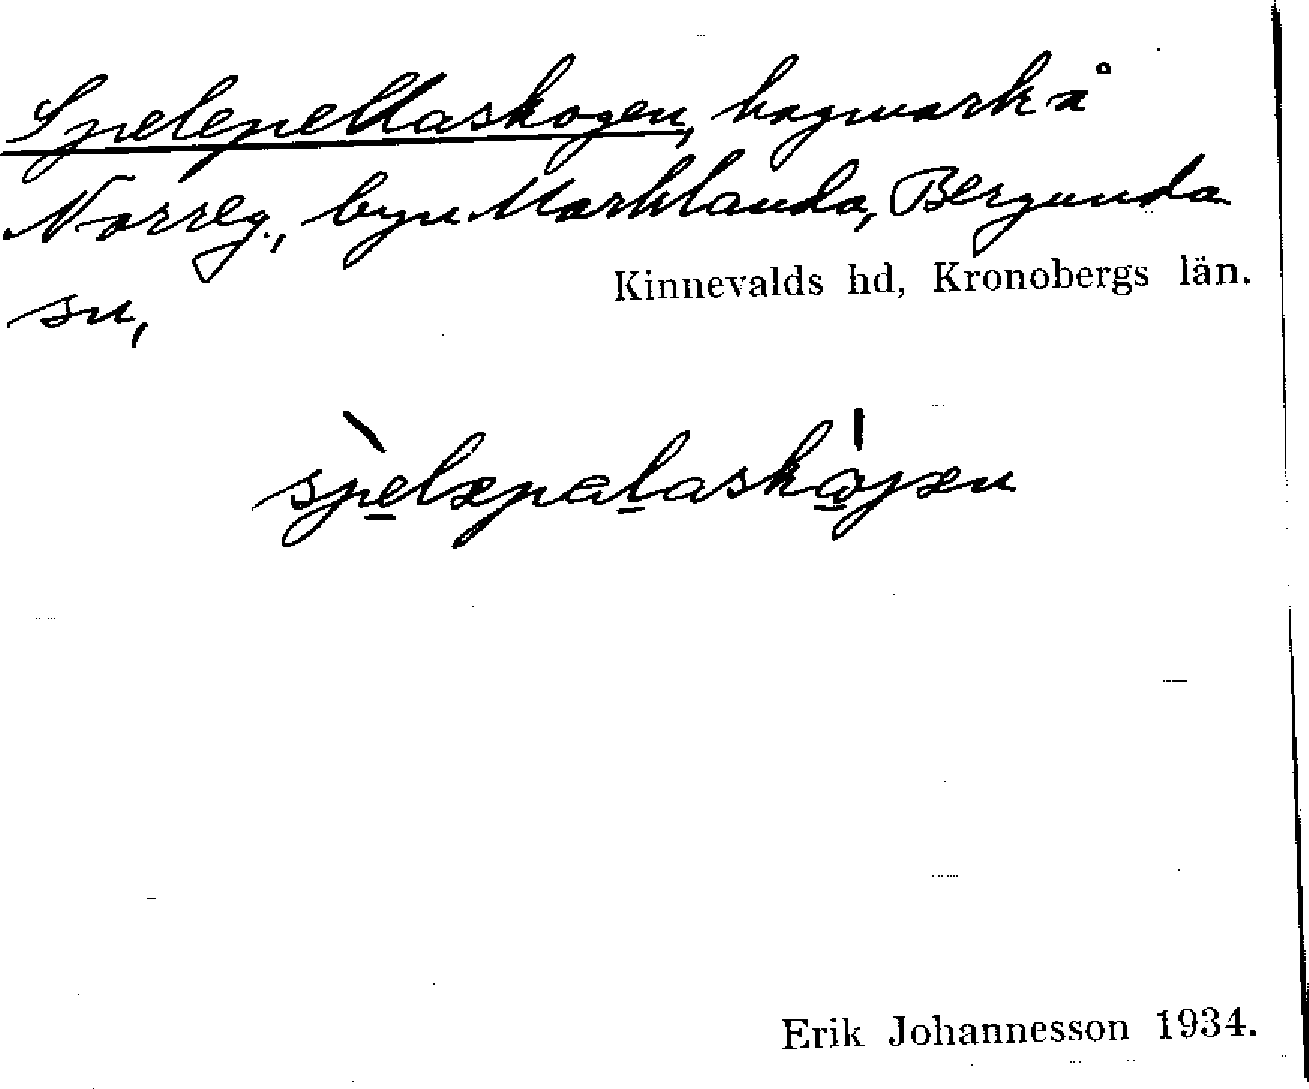 Spelepellaskogen, hagmark å
Norreg., byn Marklanda, Bergunda
sn,
Kinnevalds hd, Kronobergs län.
Erik Johannesson 1934.